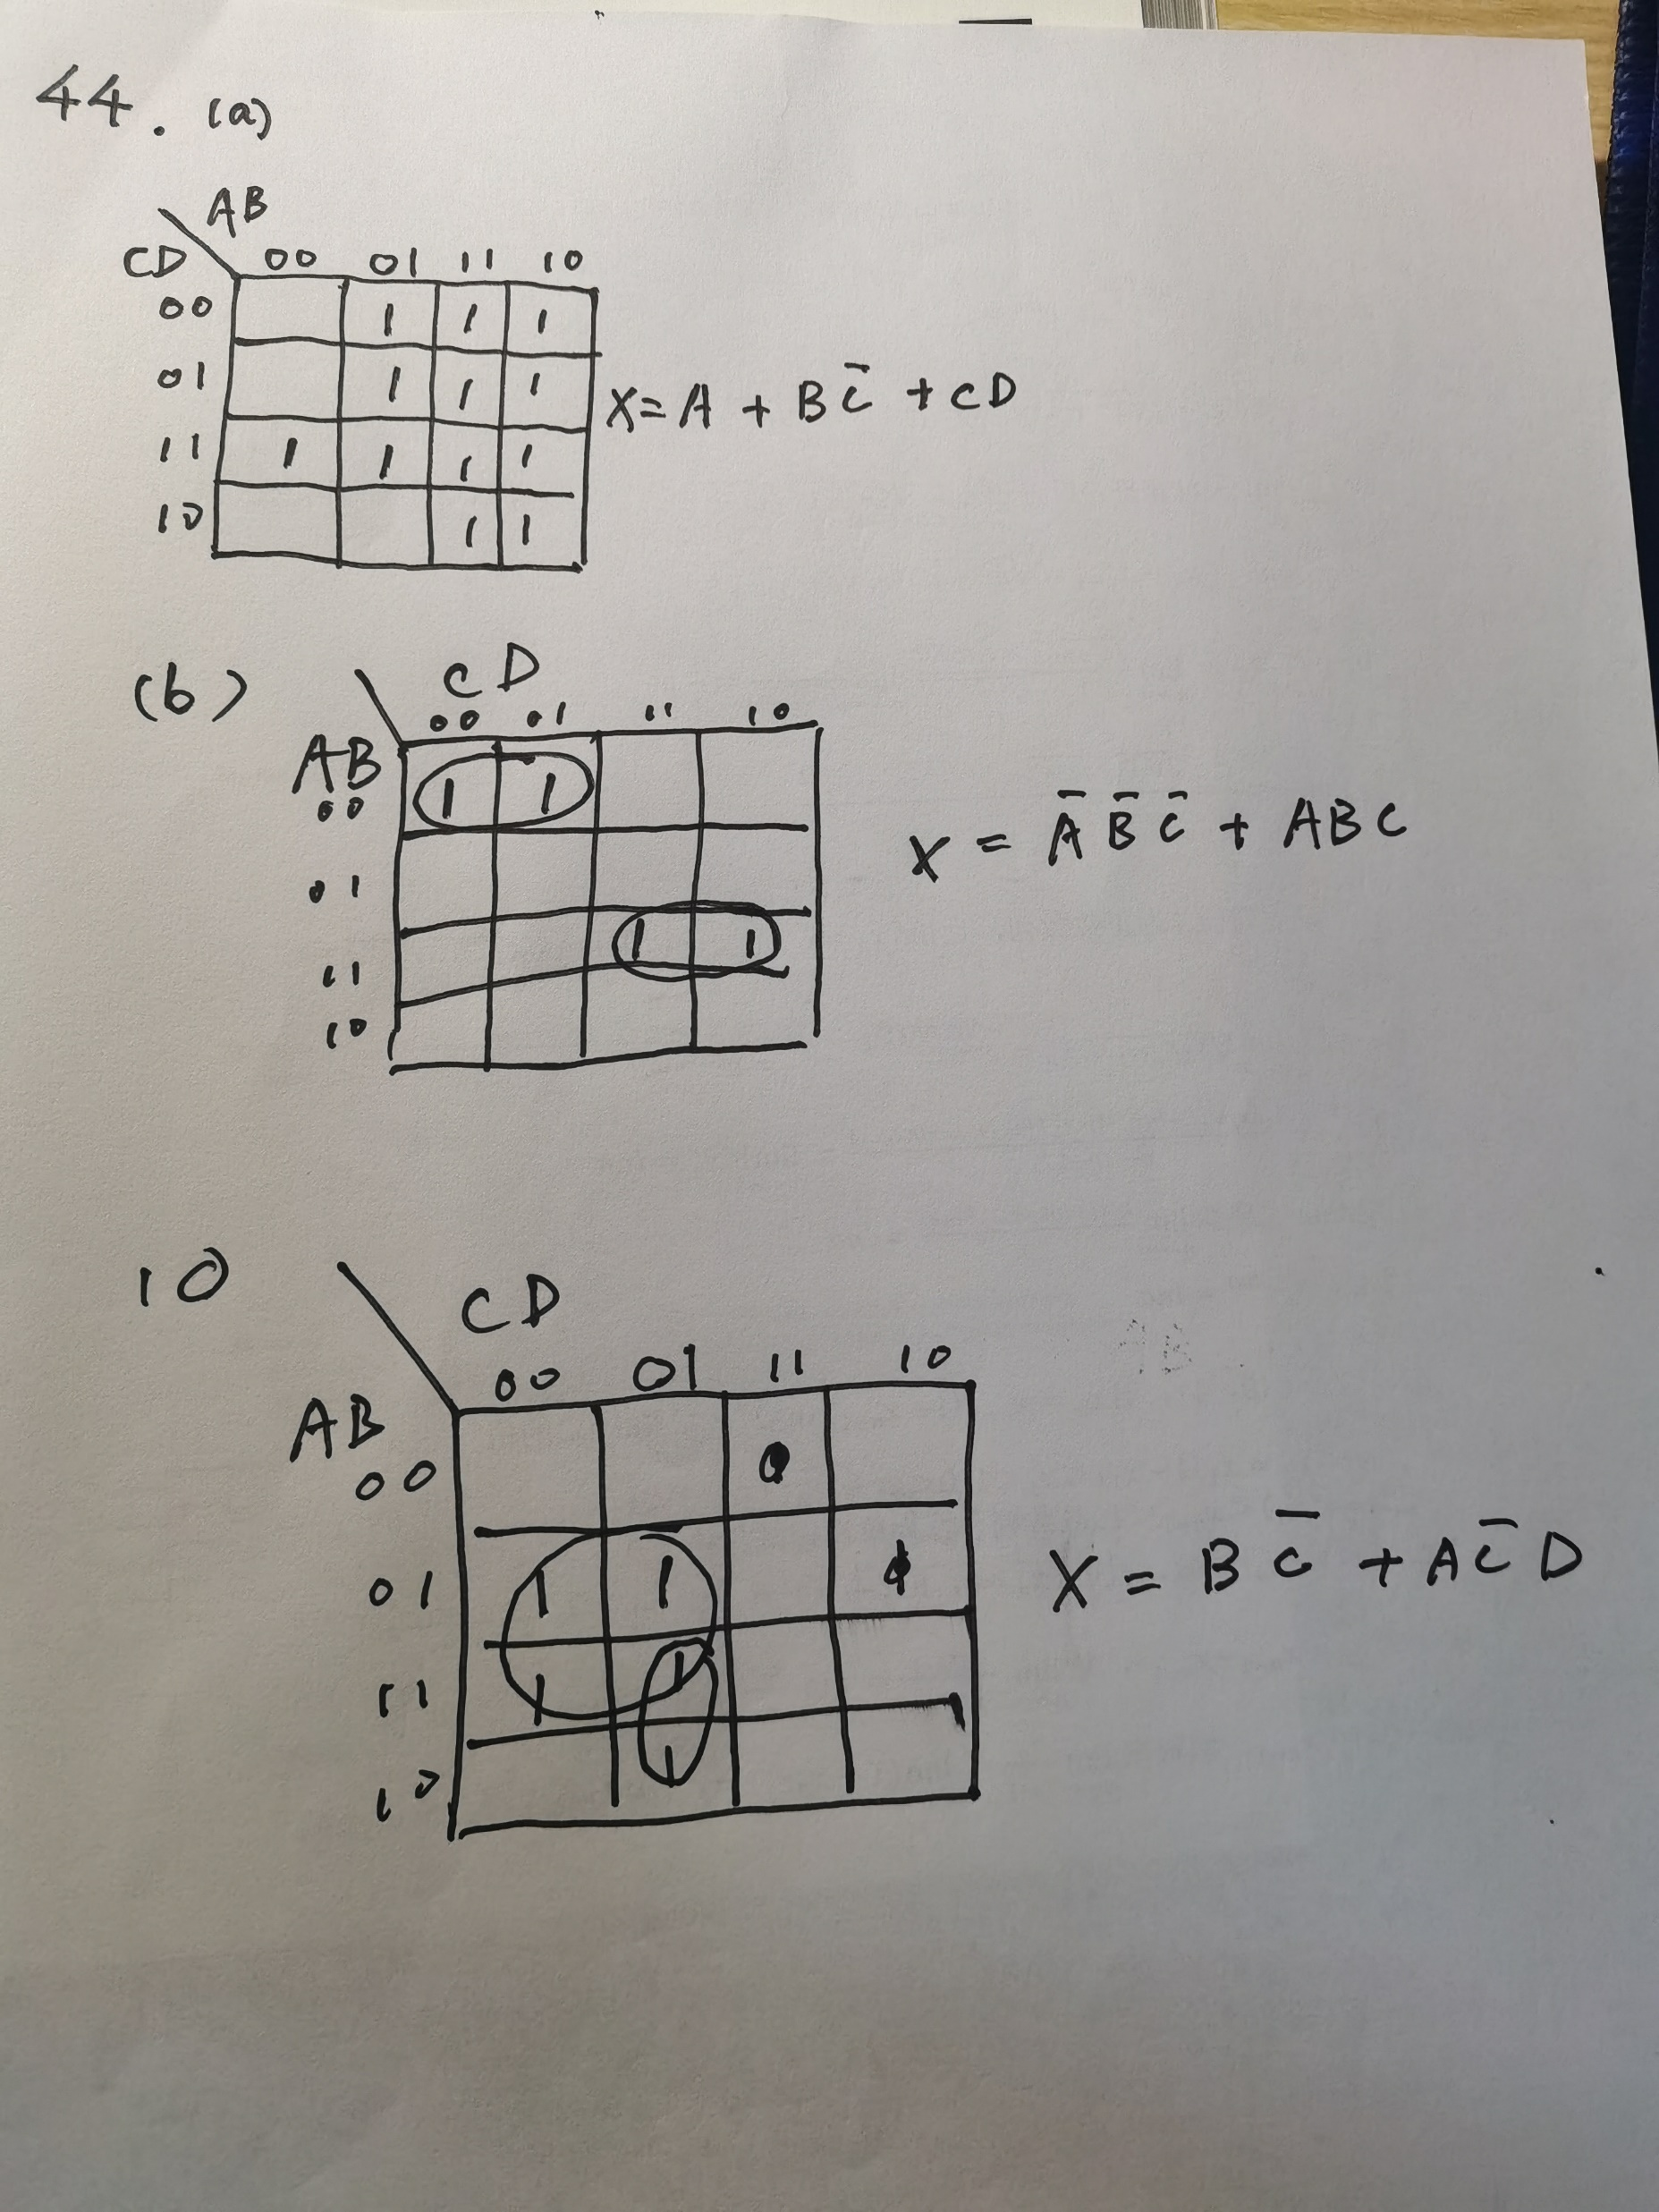 44. (a)
AB
CD 00 01 11 10
00 1 1 1
01 1 1 1
11 1 1 1 1
10 1 1
X= A + BC̅ + CD
(b) CD
00 01 11 10
AB
00 1 1
01
11 1 1
10
X = A̅ B̅ C̅ + ABC
10 CD
00 01 11 10
AB
00
01 1 1
11 1 1
10 1
X = B C̅ + A C̅ D